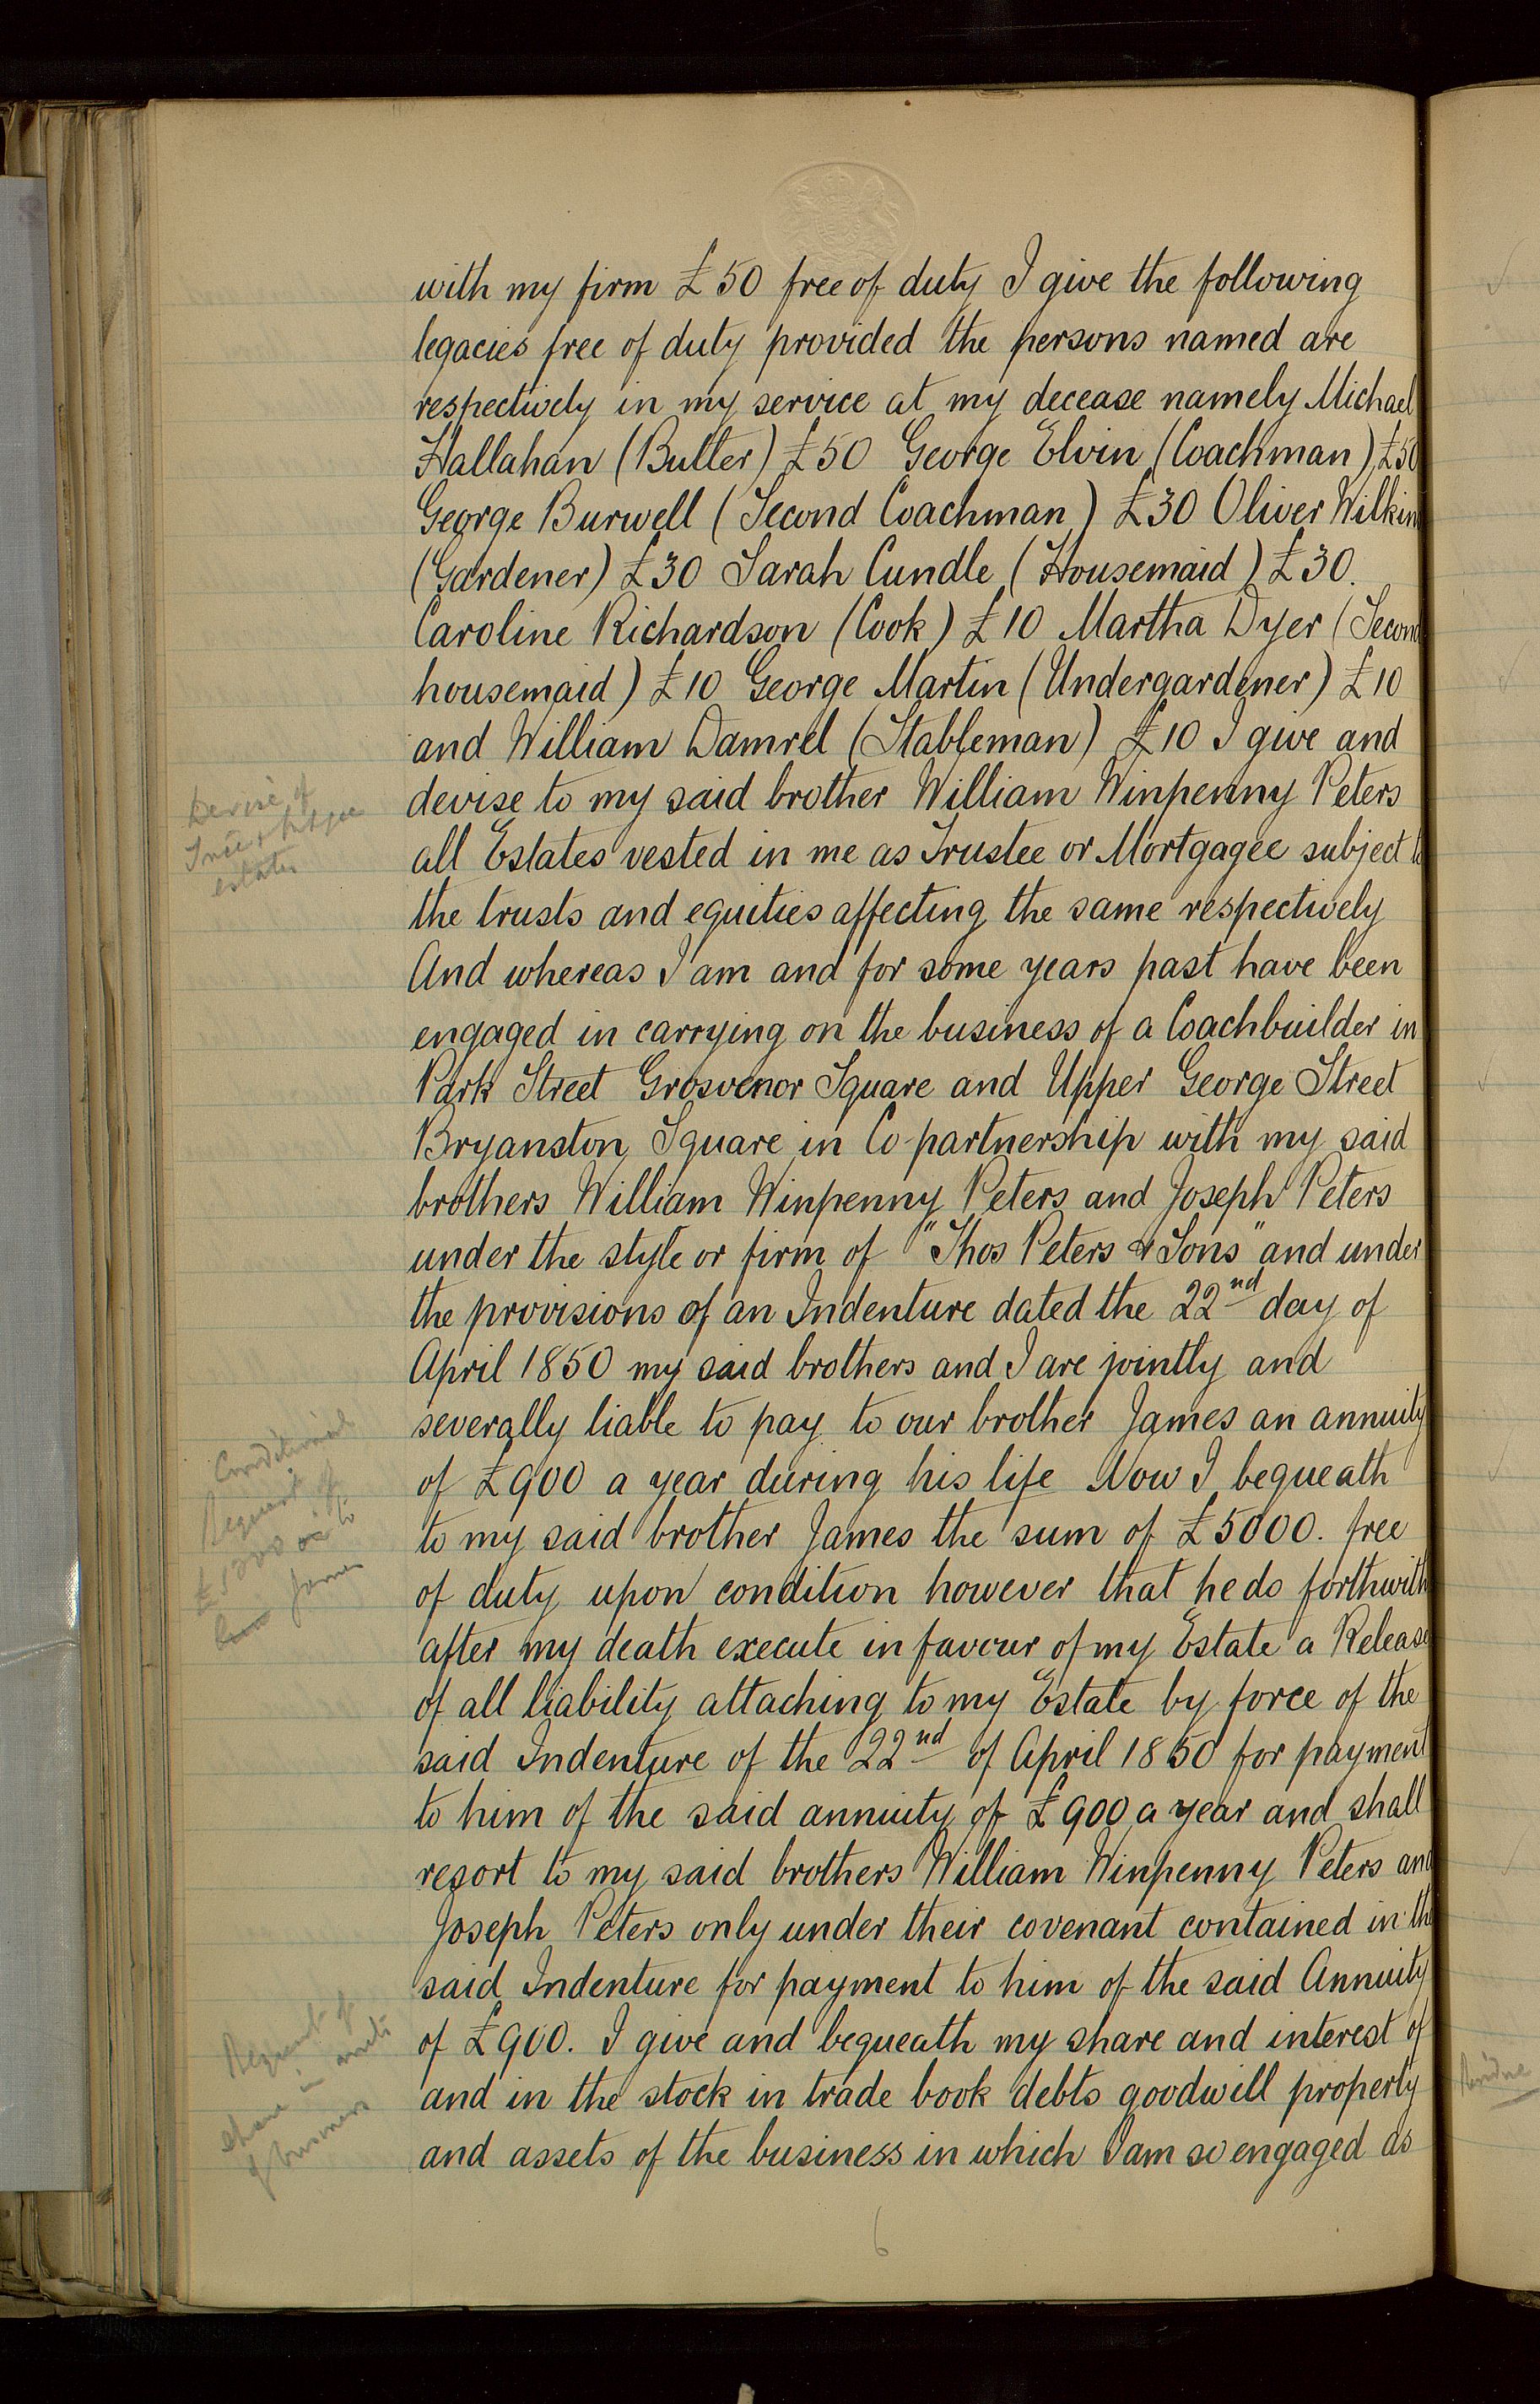 with my firm £50 free of duty I give the following
legacies free of duty provided the persons named are
respectively in my service at my decease namely Michael
Hallahan (Butler) £50 George Elvin (Coachman) £50
George Burwell (Second Coachman) £30 Oliver Wilkin
(Gardener) £30 Sarah Cundle (Housemaid) £30.
Caroline Richardson (Cook) £10 Martha Dyer (Second
housemaid) £10 George Martin (Undergardener) £10
and William Damrel (Stableman) £10 I give and
devise to my said brother William Winpenny Peters
all Estates vested in me as Trustee or Mortgagee subject to
the trusts and equities affecting the same respectively
And whereas I am and for some years past have been
engaged in carrying on the business of a Coachbuilder in
Park Street Grosvenor Square and Upper George Street
Bryanston Square in Co-partnership with my said
brothers William Winpenny Peters and Joseph Peters
under the style or firm of "Thos Peters & Sons" and under
the provisions of an Indenture dated the 22nd day of
April 1850 my said brothers and I are jointly and
severally liable to pay to our brother James an annuity
of £900 a year during his life Now I bequeath
to my said brother James the sum of £5000. free
of duty upon condition however that he do forthwith
after my death execute in favour of my Estate a Release
of all liability attaching to my Estate by force of the
said Indenture of the 22nd of April 1850 for payment
to him of the said annuity of £900 a year and shall
resort to my said brothers William Winpenny Peters and
Joseph Peters only under their covenant contained in the
said Indenture for payment to him of the said Annuity
of £900. I give and bequeath my share and interest of
and in the stock in trade book debts goodwill property
and assets of the business in which I am so engaged as
6
Devise of
estates
Conditional
Bequest of
James
Bequest of
share in assets
of business
Residue